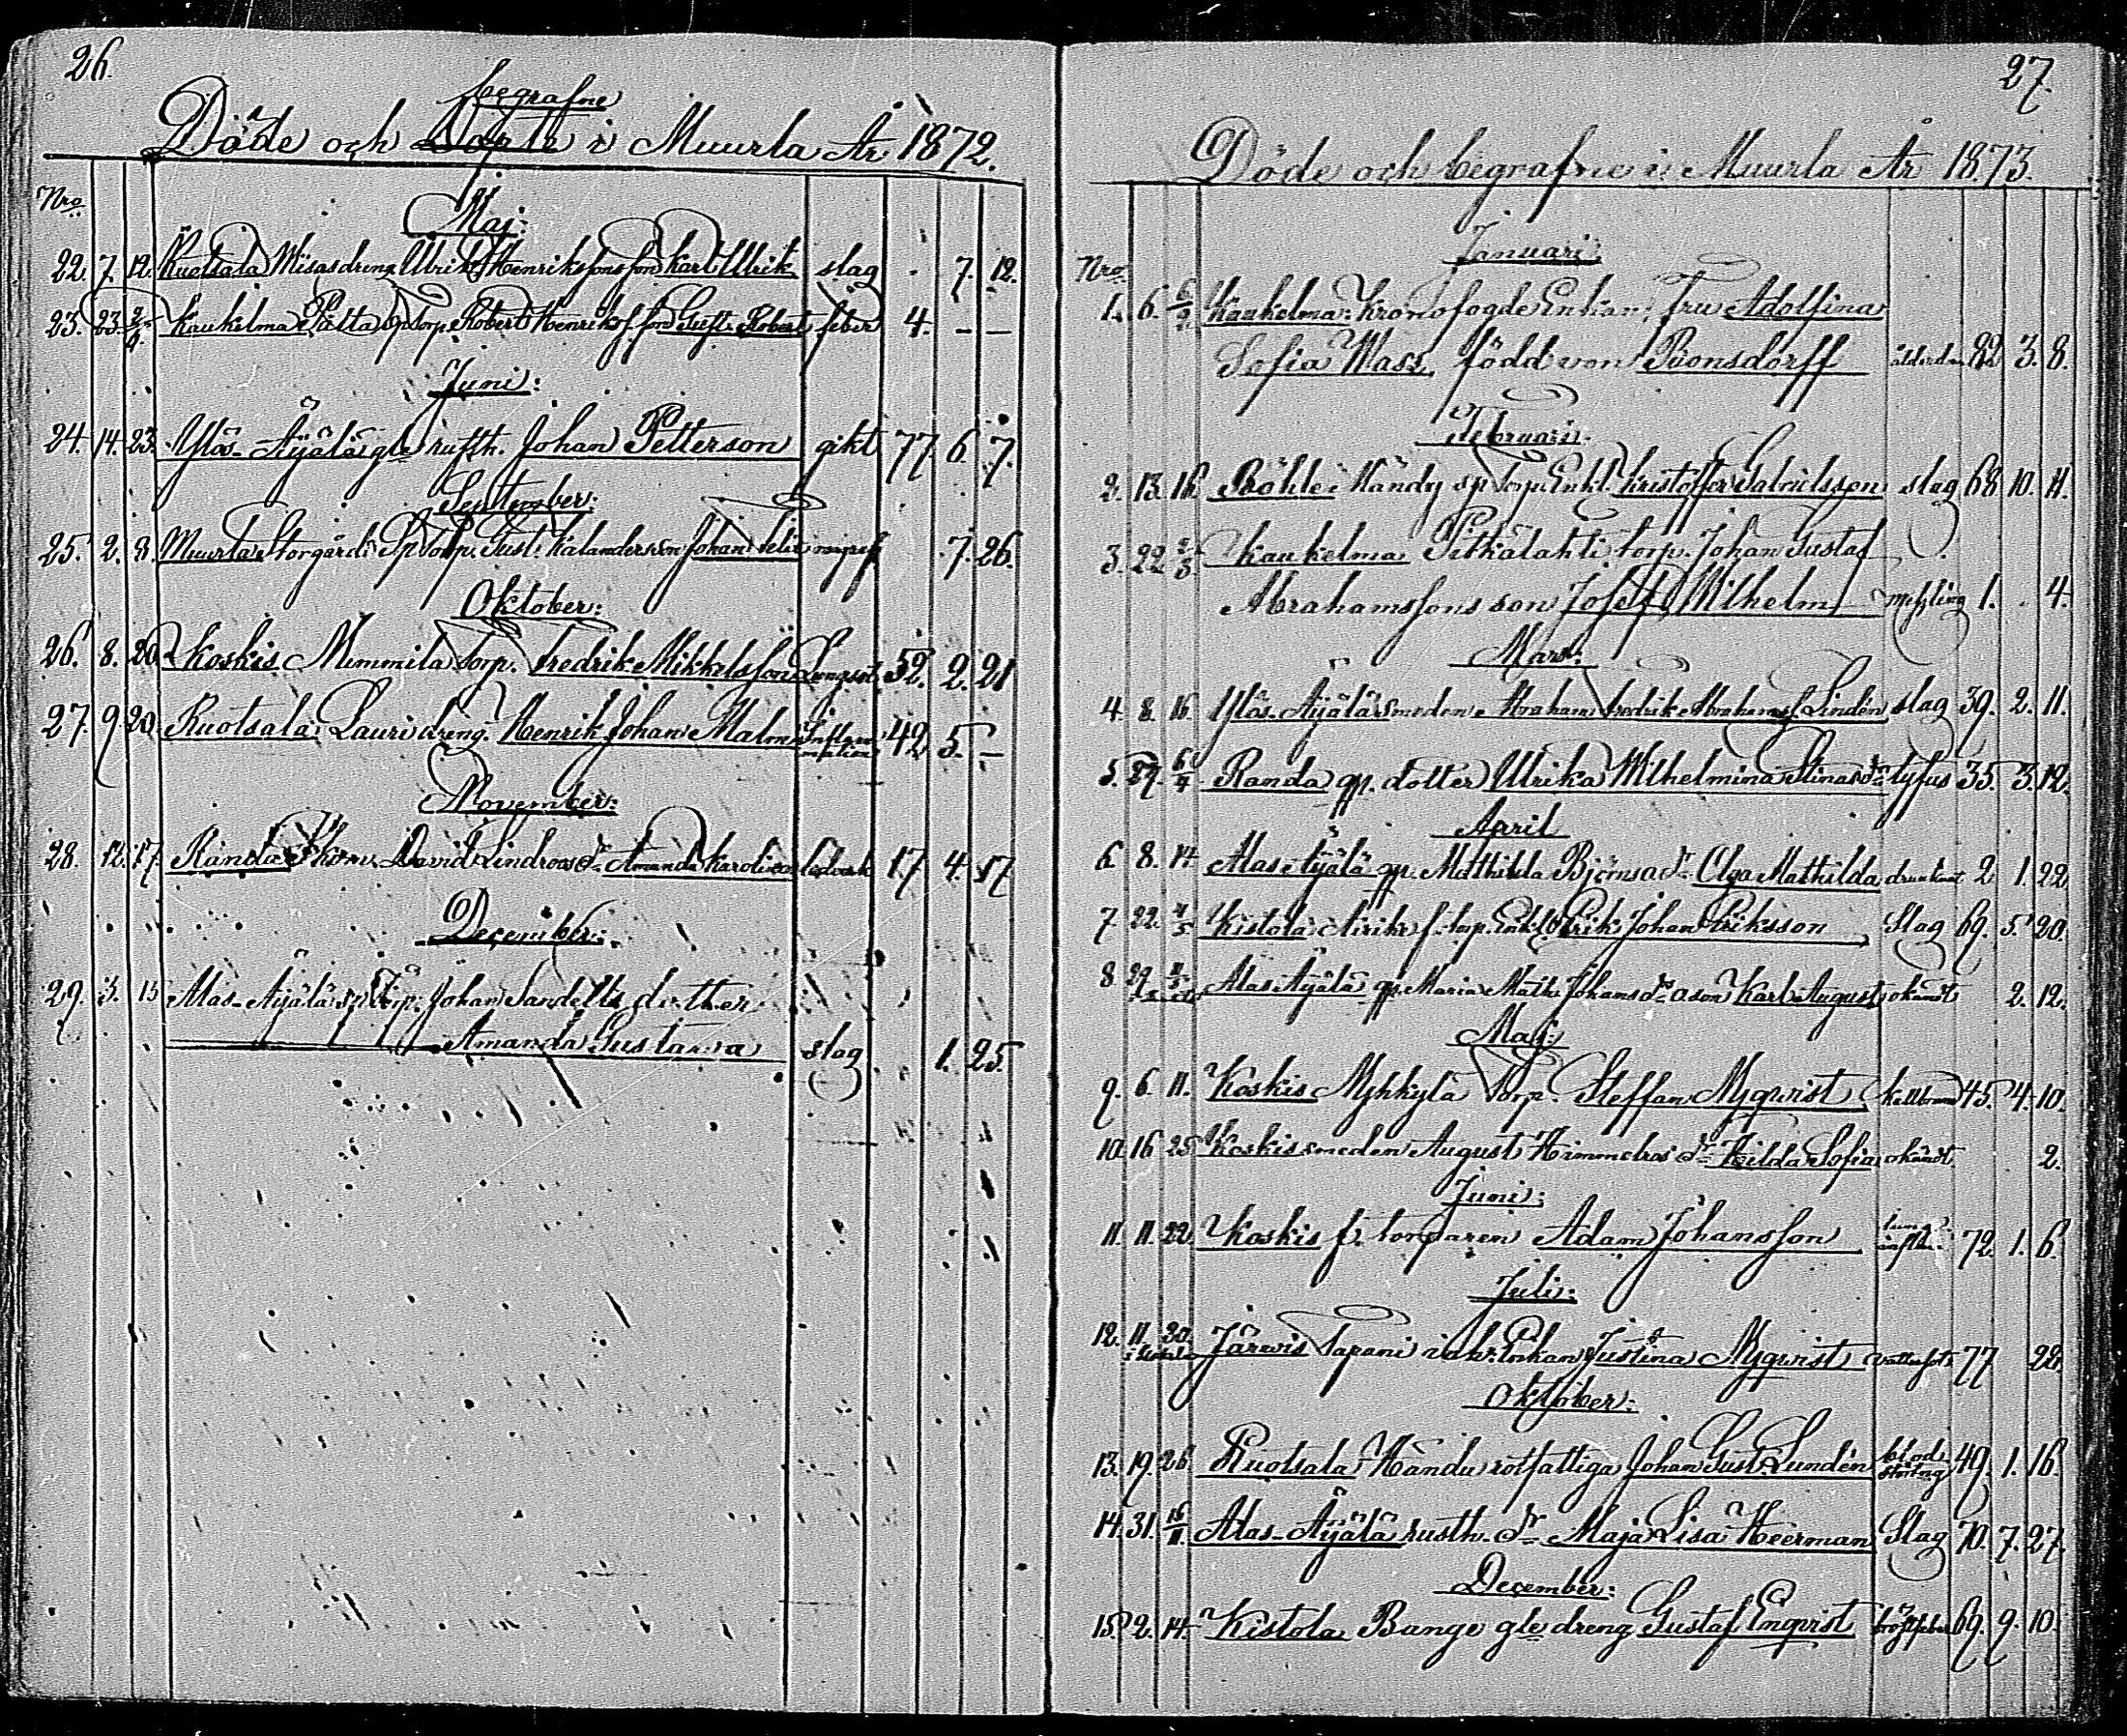 26.
begrafne
Döde och Döpte i Muurla År 1872.
Nro
Maj:
22. 7. 12. Ruotsala Misas dreng Ulrik Henrikssons son Karl Ulrik slag . 7. 12.
23. 23. 2/6 Kaukelma Pätta sp torp. Robert Henrikss. son Gust. Robert feber 4. – –
Juni:
24. 14. 23. Ylös-Äijälä gle rusth. Johan Petterson gikt 77. 6. 7.
September:
25. 2. 8. Muurla Storgård Sp torp. Gust. Kalanders son Johan . 7. 26.
Oktober:
26. 8. 20. Koskis Memmila torp. Fredrik Mikkelsson Lungsot 52. 2. 21
27. 9. 20. Ruotsala Lauri dreng. Henrik Johan Malm Inflam
mation 42 5. –
November:
28. 12. 17. Randa David Lindroos dr Amanda Karolina ledverk 17. 4. 17
December:
29. 3. 15 Alas-Äijälä sp torp. Johan Sandells dotter
Amanda Gustava slag 1. 25.
27.
Döde och begrafne i Muurla År 1873.
Januari:
Nro
1. 6. Kaukelma Kronofogde Enkan, Fru Adolfina
Sofia Wass, född von Bonsdorff ålderdom 82 3. 8.
Februari:
2. 13. 16. Pöhle Händy sp torp. Enkl. Kristoffer Gabrielsson slag 68 10. 11.
3. 22. 2/3 Kaukelma Pitkälahti torp. Johan Gustaf
Abrahamssons son Josef Wilhelm messling 1. . 4.
Mars:
4. 8. 16. Ylös-Äijälä smeden Abraham Fredrik Abrahamss. Lindén slag 39. 2. 11.
5. 29. 6/4 Randa qp. dotter Ulrika Wilhelmina Stinas dr tyfus 35. 3. 12.
April
6. 8. 14 Alas-Äijälä qp. Mathilda Björns a dr Olga Mathilda drunknat 2 1. 22
7 22. 4/5 Kistola f. torp. Enkl. Erik Johan Eriksson Slag 69. 5. 20.
8 29. 11/5 Alas-Äijälä qp. Maria Math. Johans dr a son Karl August okändt 2. 12.
Maj:
9. 6. 11. Koskis Myhkylä Torp. Steffan Nyqvist kallbrand 45. 4. 10.
10. 16 25 Koskis smeden August Himmelros dr Hilda Sofia okändt 2.
Juni:
11. 11. 22 Koskis f. torparen Adam Johansson lung
inflam. 72. 1. 6.
Juli:
12. 11. 20. Järvis Tapani inh: Enkan Justina Nyqvist vattusot 77 22.
Oktober:
13. 19. 26. Ruotsala Händu rotfattiga Johan Gust. Lundén blod
störtng 49. 1. 16.
14. 31. 16/11. Alas-Äijälä rusth. dr Maja Lisa Heerman Slag 70. 7. 27.
December:
15. 2. 14. Kistola Bange gle dreng Gustaf Enqvist bröstfeber 69. 9. 10.